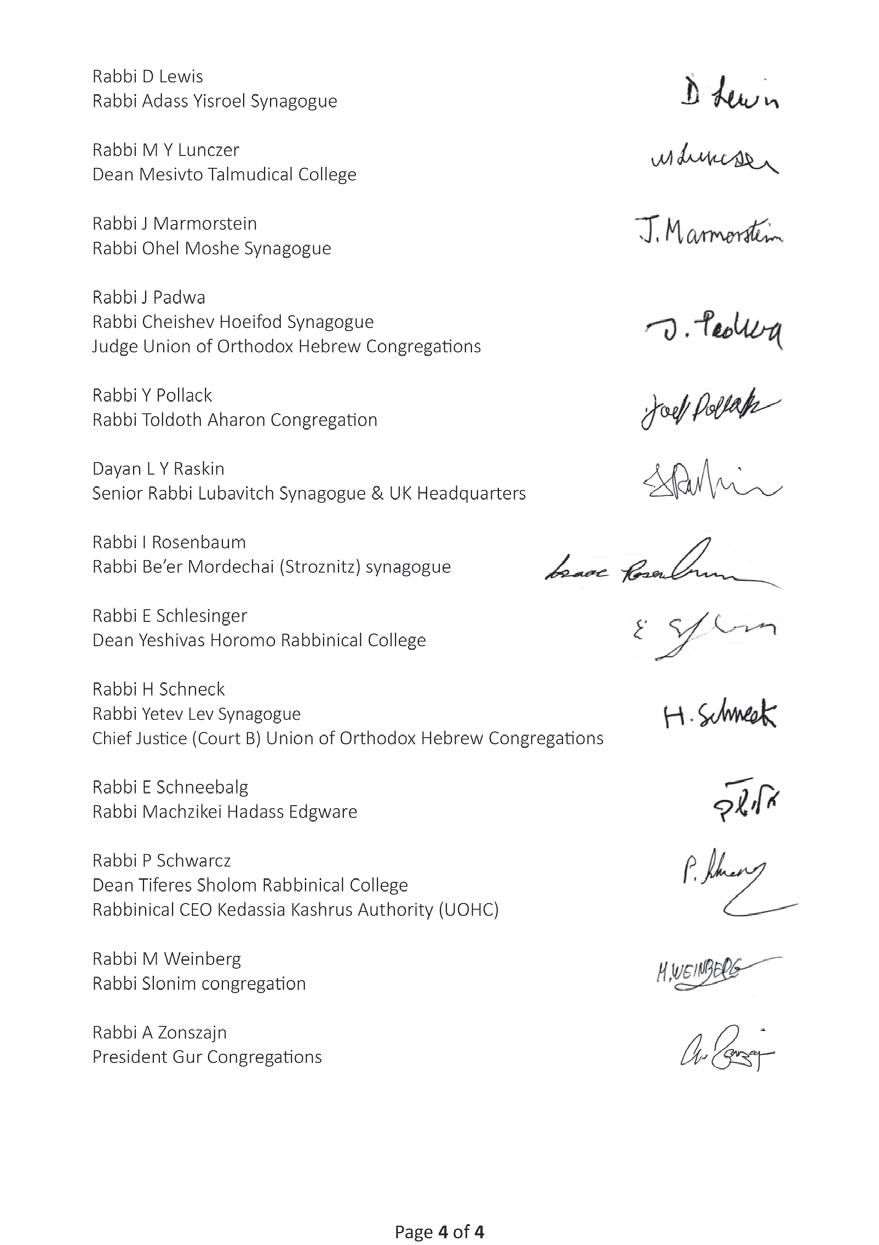 Rabbi D Lewis
Rabbi Adass Yisroel Synagogue
D Lewin
Rabbi M Y Lunczer
Dean Mesivto Talmudical College
Rabbi J Marmorstein
Rabbi Ohel Moshe Synagogue
J. Marmorstein
Rabbi J Padwa
Rabbi Cheishev Hoeifod Synagogue
Judge Union of Orthodox Hebrew Congregations
J. Padwa
Rabbi Y Pollack
Rabbi Toldoth Aharon Congregation
Joel Pollak
Dayan L Y Raskin
Senior Rabbi Lubavitch Synagogue & UK Headquarters
Rabbi I Rosenbaum
Rabbi Be’er Mordechai (Stroznitz) synagogue
Isaac Rosenbaum
Rabbi E Schlesinger
Dean Yeshivas Horomo Rabbinical College
Rabbi H Schneck
Rabbi Yetev Lev Synagogue
Chief Justice (Court B) Union of Orthodox Hebrew Congregations
H. Schneck
Rabbi E Schneebalg
Rabbi Machzikei Hadass Edgware
Rabbi P Schwarcz
Dean Tiferes Sholom Rabbinical College
Rabbinical CEO Kedassia Kashrus Authority (UOHC)
Rabbi M Weinberg
Rabbi Slonim congregation
M. WEINBERG
Rabbi A Zonszajn
President Gur Congregations
Page 4 of 4